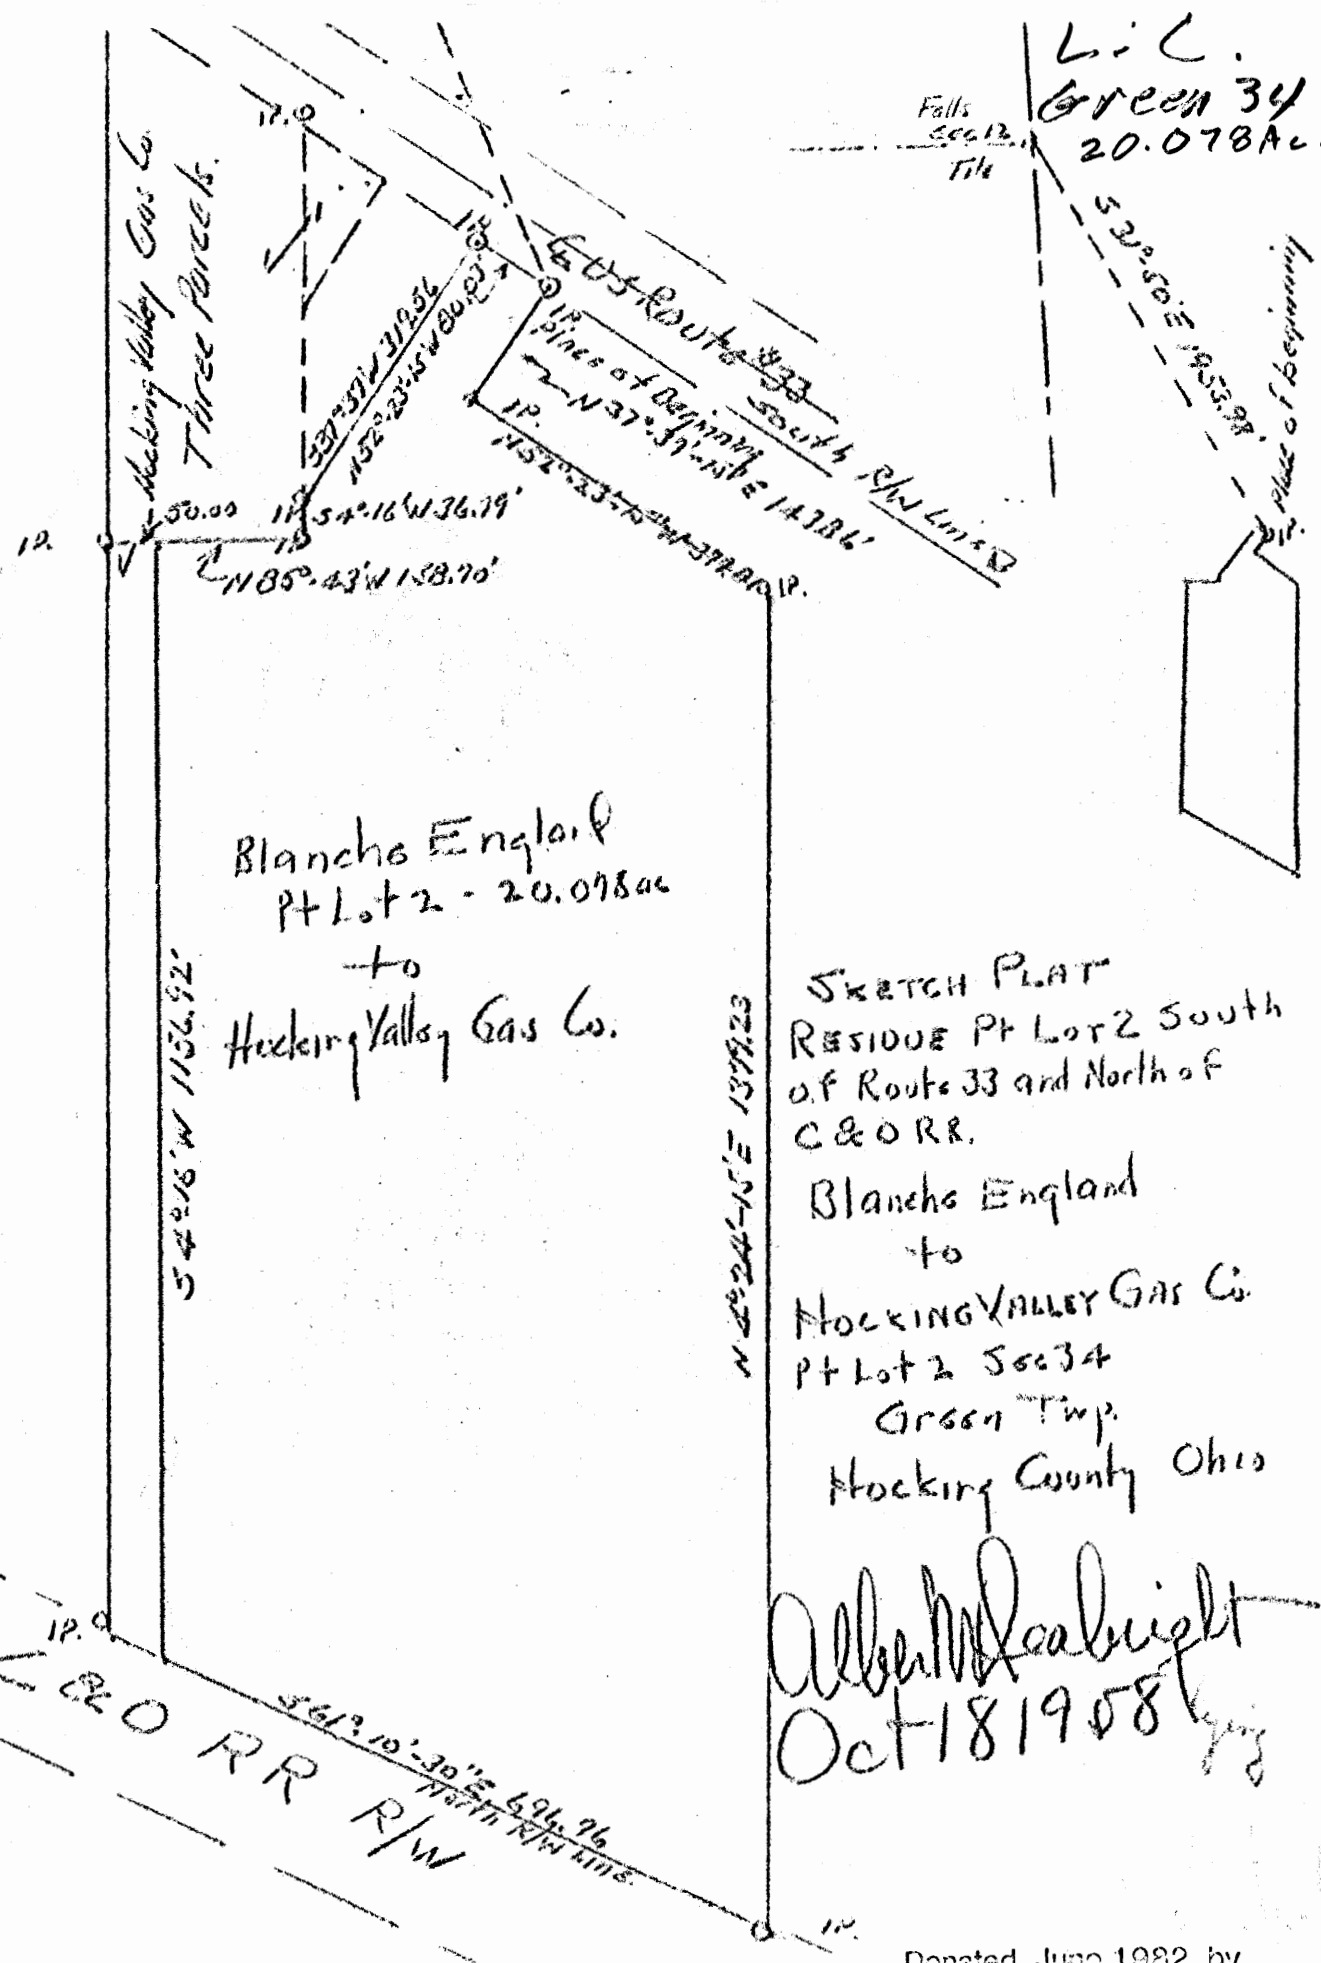 L.C.
Green 34
20.078Ac.
Falls
Sec 12
Tile
S 31°-50'E 1953.98'
Place of beginning
IP.
Hocking Valley Gas Co
Three Parcels.
IP.
IP.
℄ US Route #33
South R/W Line
IP.
Place of Beginning
N 37°-37'-15"E 143.86'
IP.
S37°-37'W 319.56
N52°-23'-15"W 80.03
N52°-23'-15"W
IP.
50.00
IP.
S4°-16'W 36.79'
IP.
IP.
N 85°-43'W 158.70'
Blanche England
Pt Lot 2 - 20.078ac
to
Hocking Valley Gas Co.
S 4°-16'W 1156.92'
N 4°-24'-15"E
SKETCH PLAT
RESIDUE Pt LOT 2 South
of Route 33 and North of
C & O RR.
Blanche England
to
HOCKING VALLEY GAS Co.
Pt Lot 2 Sec 34
Green Twp.
Hocking County Ohio
Oct 18 1958
IP.
C & O RR R/W
S 61°-10'-30"E 696.76
North R/W Line.
IP.
Donated June 1982 by